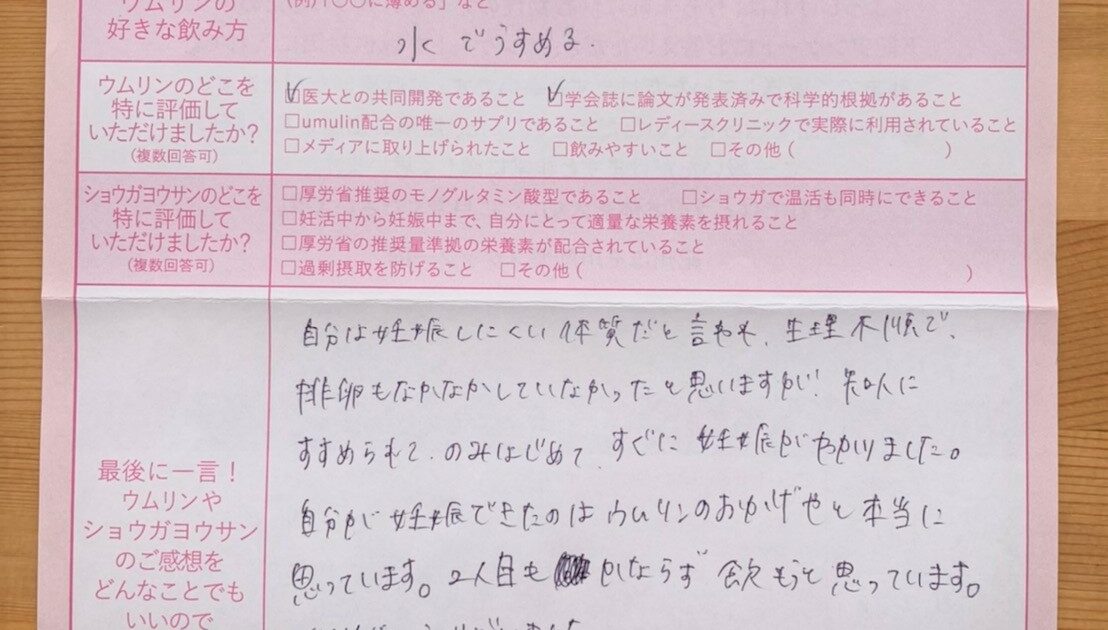 ウムリンの
好きな飲み方
(例)「○○に薄める」など
水でうすめる.
ウムリンのどこを
特に評価して
いただけましたか?
(複数回答可)
☑医大との共同開発であること ☑学会誌に論文が発表済みで科学的根拠があること
□umulin配合の唯一のサプリであること □レディースクリニックで実際に利用されていること
□メディアに取り上げられたこと □飲みやすいこと □その他( )
ショウガヨウサンのどこを
特に評価して
いただけましたか?
(複数回答可)
□厚労省推奨のモノグルタミン酸型であること □ショウガで温活も同時にできること
□妊活中から妊娠中まで、自分にとって適量な栄養素を摂れること
□厚労省の推奨量準拠の栄養素が配合されていること
□過剰摂取を防げること □その他( )
最後に一言!
ウムリンや
ショウガヨウサン
のご感想を
どんなことでも
いいので
自分は妊娠しにくい体質だと言われ、生理不順で、
排卵もなかなかしていなかったと思いますが、知人に
すすめられて、のみはじめて、すぐに妊娠がわかりました。
自分が妊娠できたのはウムリンのおかげやと本当に
思っています。2人目もかならず飲もうと思っています。